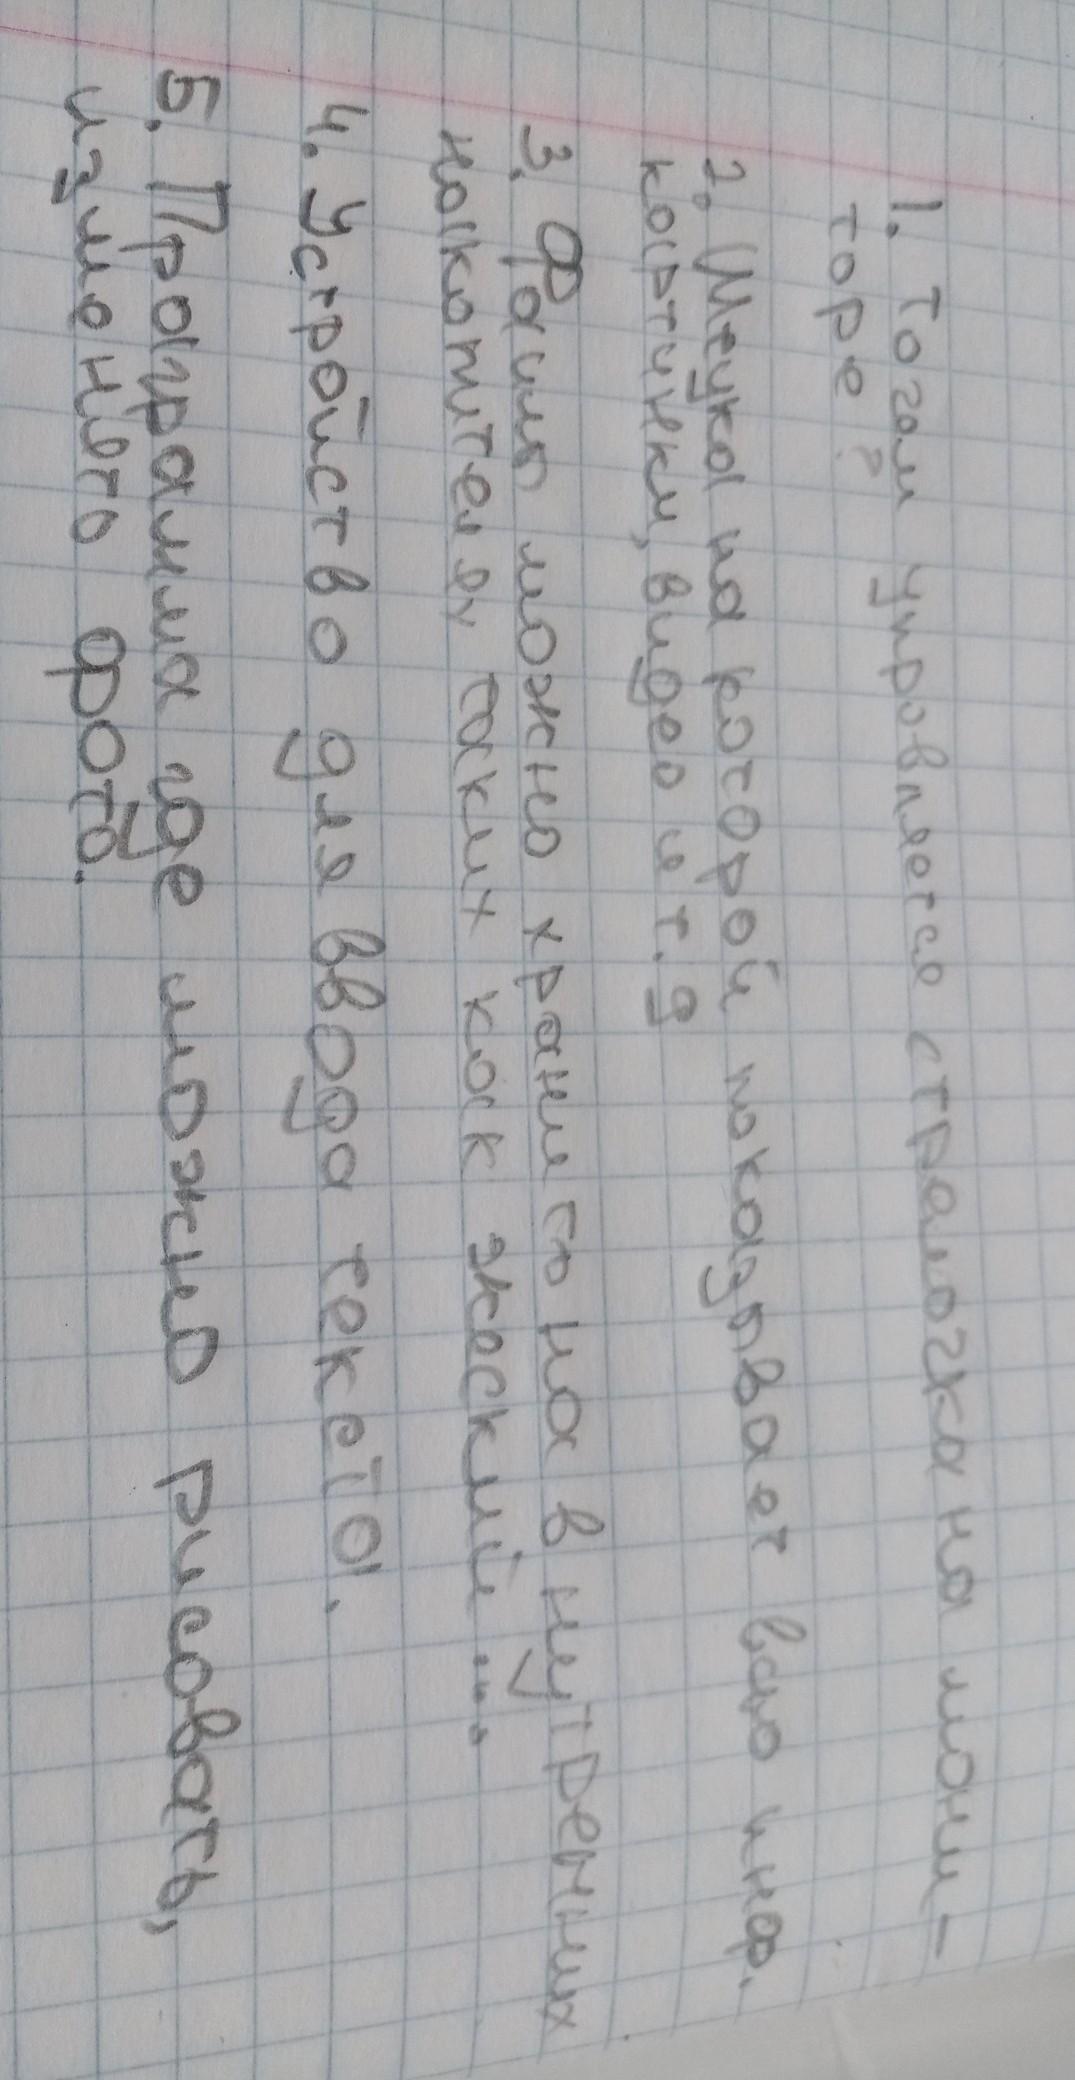 1. Тогом управляется стралочка на мони-
торе?
2. Штука на которой показывает всю инф.
картинки, видео и т.д
3. Файлы можно хранить на внутренних
накопителях таких как жоский...
4. Устройство для ввода текста.
5. Программа где можно рисовать,
изменять фото.